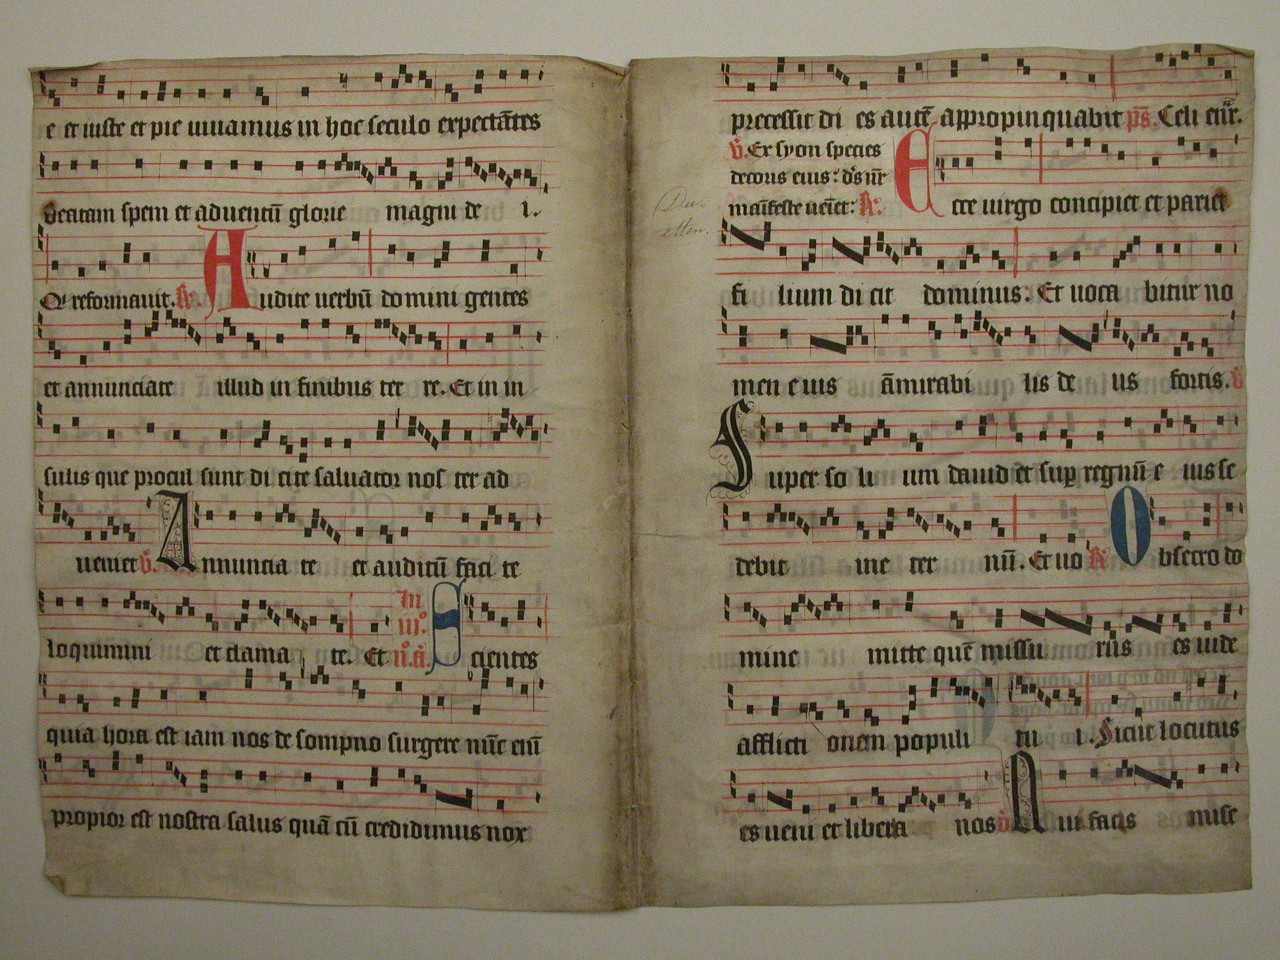 e et iuste et pie uiuamus in hoc seculo expectātes
beatam spem et aduentū glorie magni de i.
Qi reformauit. R. Audite uerbū domini gentes
et annunciate illud in finibus ter re. Et in in
sulis que procul sunt di cite saluator nos ter ad
ueniet V. Annuncia te et auditū faci te
loquimini et clama te. Et In iii. n. a. Scientes
quia hora est iam nos de sompno surgere nūc eiū
propior est nostra salus quā cū credidimus nox
precessit di es autē appropinquabit ps. Celi enr.
V. Ex syon species
decoris eius: ds nr
manifeste ueiet: R. Ecce uirgo concipiet et pariet
Du.
etten.
fi lium di cit dominus: Et uoca bitur no
men eius āmirabi lis de us fortis. V.
Super so li um dauid et sup regnū e ius se
debit ine ter nū. Et uo R. Obsecro do
mine mitte quē missu rus es uide
afflicti onem populi tu i. Sicut locutus
es ueni et libera nos V. Qui facis mise